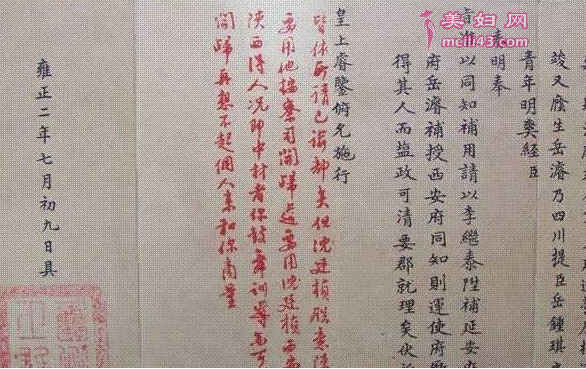 美妇网
竣又廕生岳濬乃四川提臣岳鍾琪
青年明爽經臣
奏明奉
旨准以同知補用請以李繼泰陞補延安府
府岳濬補授西安府同知則運使府
得其人而盐政可清要郡就理矣伏
皇上睿鑒俯允施行
皆依所請已諭部矣但沈廷楨朕意
要用他按察司開歸道要用沈廷楨西
陝西得人况即中材者你鼓舞訓導
開歸再想不起個人來和你商量
雍正二年七月初九日具